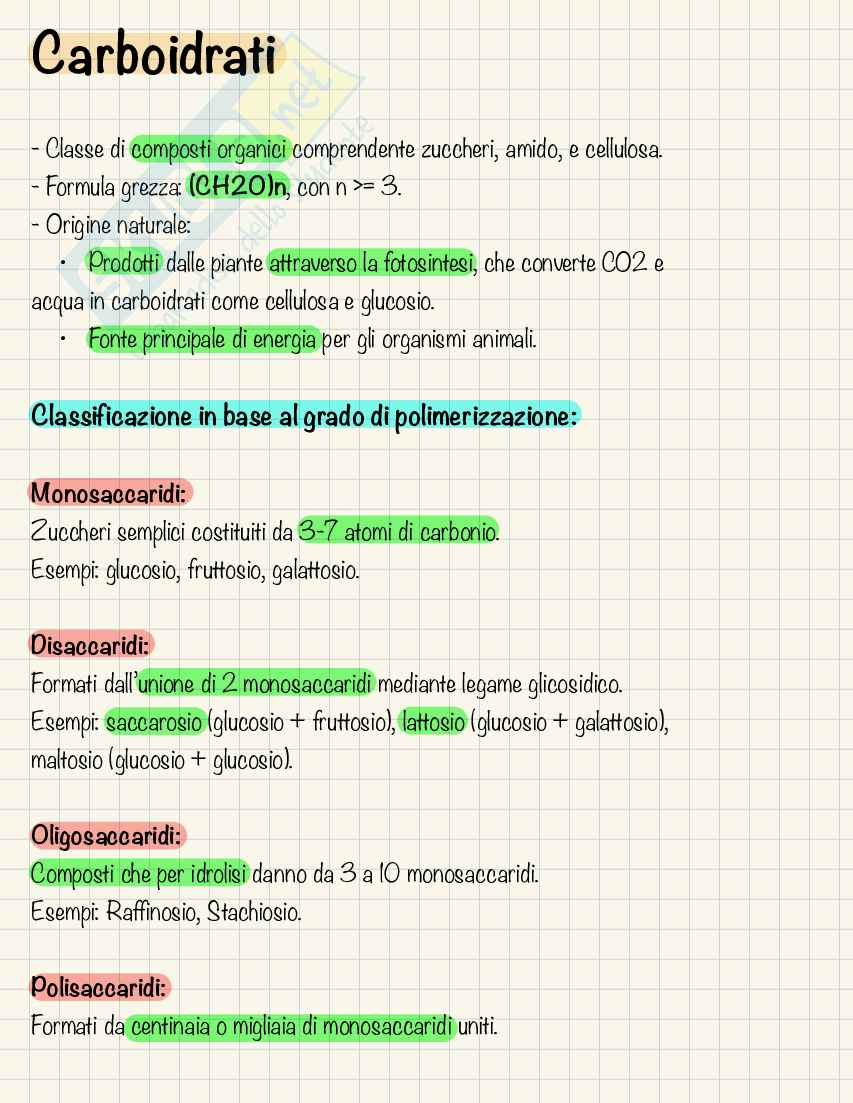 Carboidrati
- Classe di composti organici comprendente zuccheri, amido, e cellulosa.
- Formula grezza: (CH2O)n, con n >= 3.
- Origine naturale:
• Prodotti dalle piante attraverso la fotosintesi, che converte CO2 e
acqua in carboidrati come cellulosa e glucosio.
• Fonte principale di energia per gli organismi animali.
Classificazione in base al grado di polimerizzazione:
Monosaccaridi:
Zuccheri semplici costituiti da 3-7 atomi di carbonio.
Esempi: glucosio, fruttosio, galattosio.
Disaccaridi:
Formati dall'unione di 2 monosaccaridi mediante legame glicosidico.
Esempi: saccarosio (glucosio + fruttosio), lattosio (glucosio + galattosio),
maltosio (glucosio + glucosio).
Oligosaccaridi:
Composti che per idrolisi danno da 3 a 10 monosaccaridi.
Esempi: Raffinosio, Stachiosio.
Polisaccaridi:
Formati da centinaia o migliaia di monosaccaridi uniti.
net
dello studente